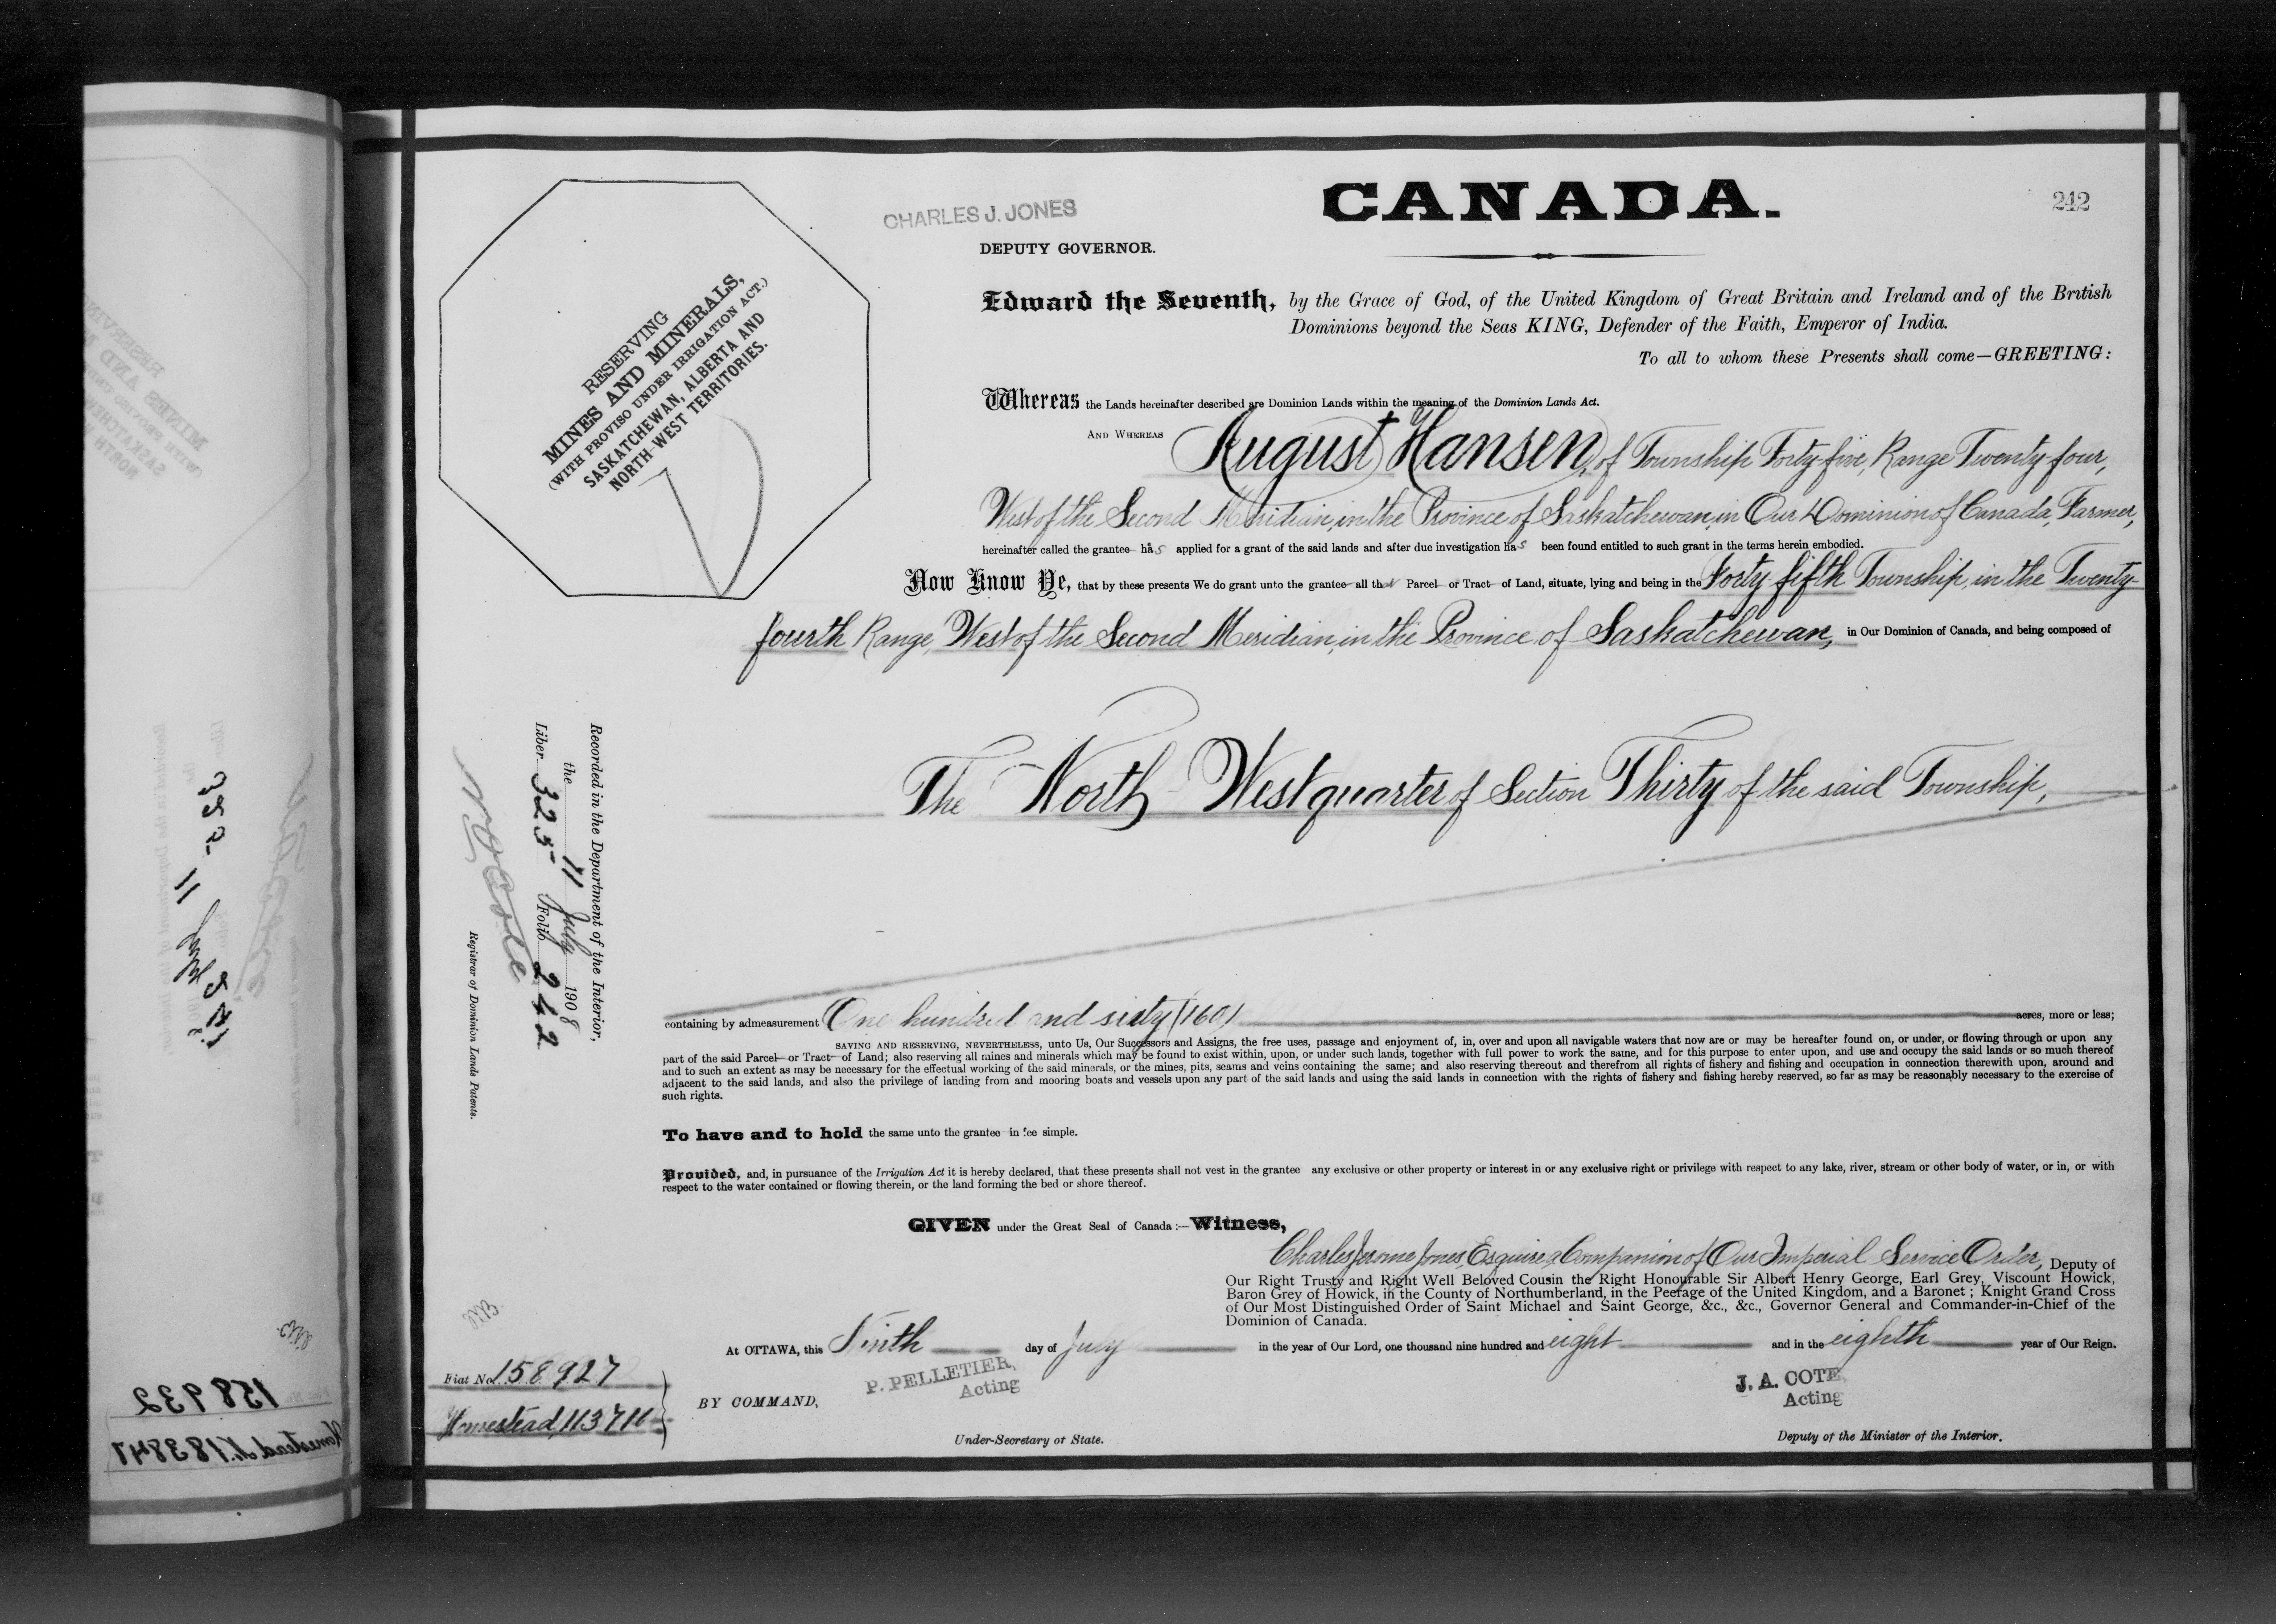 CHARLES J. JONES
DEPUTY GOVERNOR.
CANADA.
242
RESERVING
MINES AND MINERALS,
(WITH PROVISO UNDER IRRIGATION ACT.)
SASKATCHEWAN, ALBERTA AND
NORTH-WEST TERRITORIES.
Edward the Seventh, by the Grace of God, of the United Kingdom of Great Britain and Ireland and of the British
Dominions beyond the Seas KING, Defender of the Faith, Emperor of India.
To all to whom these Presents shall come—GREETING:
Whereas the Lands hereinafter described are Dominion Lands within the meaning of the Dominion Lands Act.
AND WHEREAS August Hansen, of Township Forty-five, Range Twenty-four,
West of the Second Meridian, in the Province of Saskatchewan, in Our Dominion of Canada, Farmer,
hereinafter called the grantee has applied for a grant of the said lands and after due investigation has been found entitled to such grant in the terms herein embodied.
Now Know Ye, that by these presents We do grant unto the grantee all that Parcel or Tract of Land, situate, lying and being in the Forty-fifth Township, in the Twenty-
fourth Range, West of the Second Meridian, in the Province of Saskatchewan, in Our Dominion of Canada, and being composed of
The North West quarter of Section Thirty of the said Township,
containing by admeasurement One hundred and sixty (160) acres, more or less;
SAVING AND RESERVING, NEVERTHELESS, unto Us, Our Successors and Assigns, the free uses, passage and enjoyment of, in, over and upon all navigable waters that now are or may be hereafter found on, or under, or flowing through or upon any
part of the said Parcel or Tract of Land; also reserving all mines and minerals which may be found to exist within, upon, or under such lands, together with full power to work the same, and for this purpose to enter upon, and use and occupy the said lands or so much thereof
and to such an extent as may be necessary for the effectual working of the said minerals, or the mines, pits, seams and veins containing the same; and also reserving thereout and therefrom all rights of fishery and fishing and occupation in connection therewith upon, around and
adjacent to the said lands, and also the privilege of landing from and mooring boats and vessels upon any part of the said lands and using the said lands in connection with the rights of fishery and fishing hereby reserved, so far as may be reasonably necessary to the exercise of
such rights.
To have and to hold the same unto the grantee in fee simple.
Provided, and, in pursuance of the Irrigation Act it is hereby declared, that these presents shall not vest in the grantee any exclusive or other property or interest in or any exclusive right or privilege with respect to any lake, river, stream or other body of water, or in, or with
respect to the water contained or flowing therein, or the land forming the bed or shore thereof.
GIVEN under the Great Seal of Canada:—Witness,
Charles Jerome Jones, Esquire, a Companion of Our Imperial Service Order, Deputy of
Our Right Trusty and Right Well Beloved Cousin the Right Honourable Sir Albert Henry George, Earl Grey, Viscount Howick,
Baron Grey of Howick, in the County of Northumberland, in the Peerage of the United Kingdom, and a Baronet; Knight Grand Cross
of Our Most Distinguished Order of Saint Michael and Saint George, &c., &c., Governor General and Commander-in-Chief of the
Dominion of Canada.
At OTTAWA, this Ninth day of July in the year of Our Lord, one thousand nine hundred and eight and in the eighth year of Our Reign.
BY COMMAND,
P. PELLETIER,
Acting
Under-Secretary of State.
J. A. COTE
Acting
Deputy of the Minister of the Interior.
Recorded in the Department of the Interior,
the 11 July 1908
Liber 325 Folio 242
N O Coté
Registrar of Dominion Lands Patents.
Fiat No. 158927
Homestead, 113711
158932
Homestead, 183847